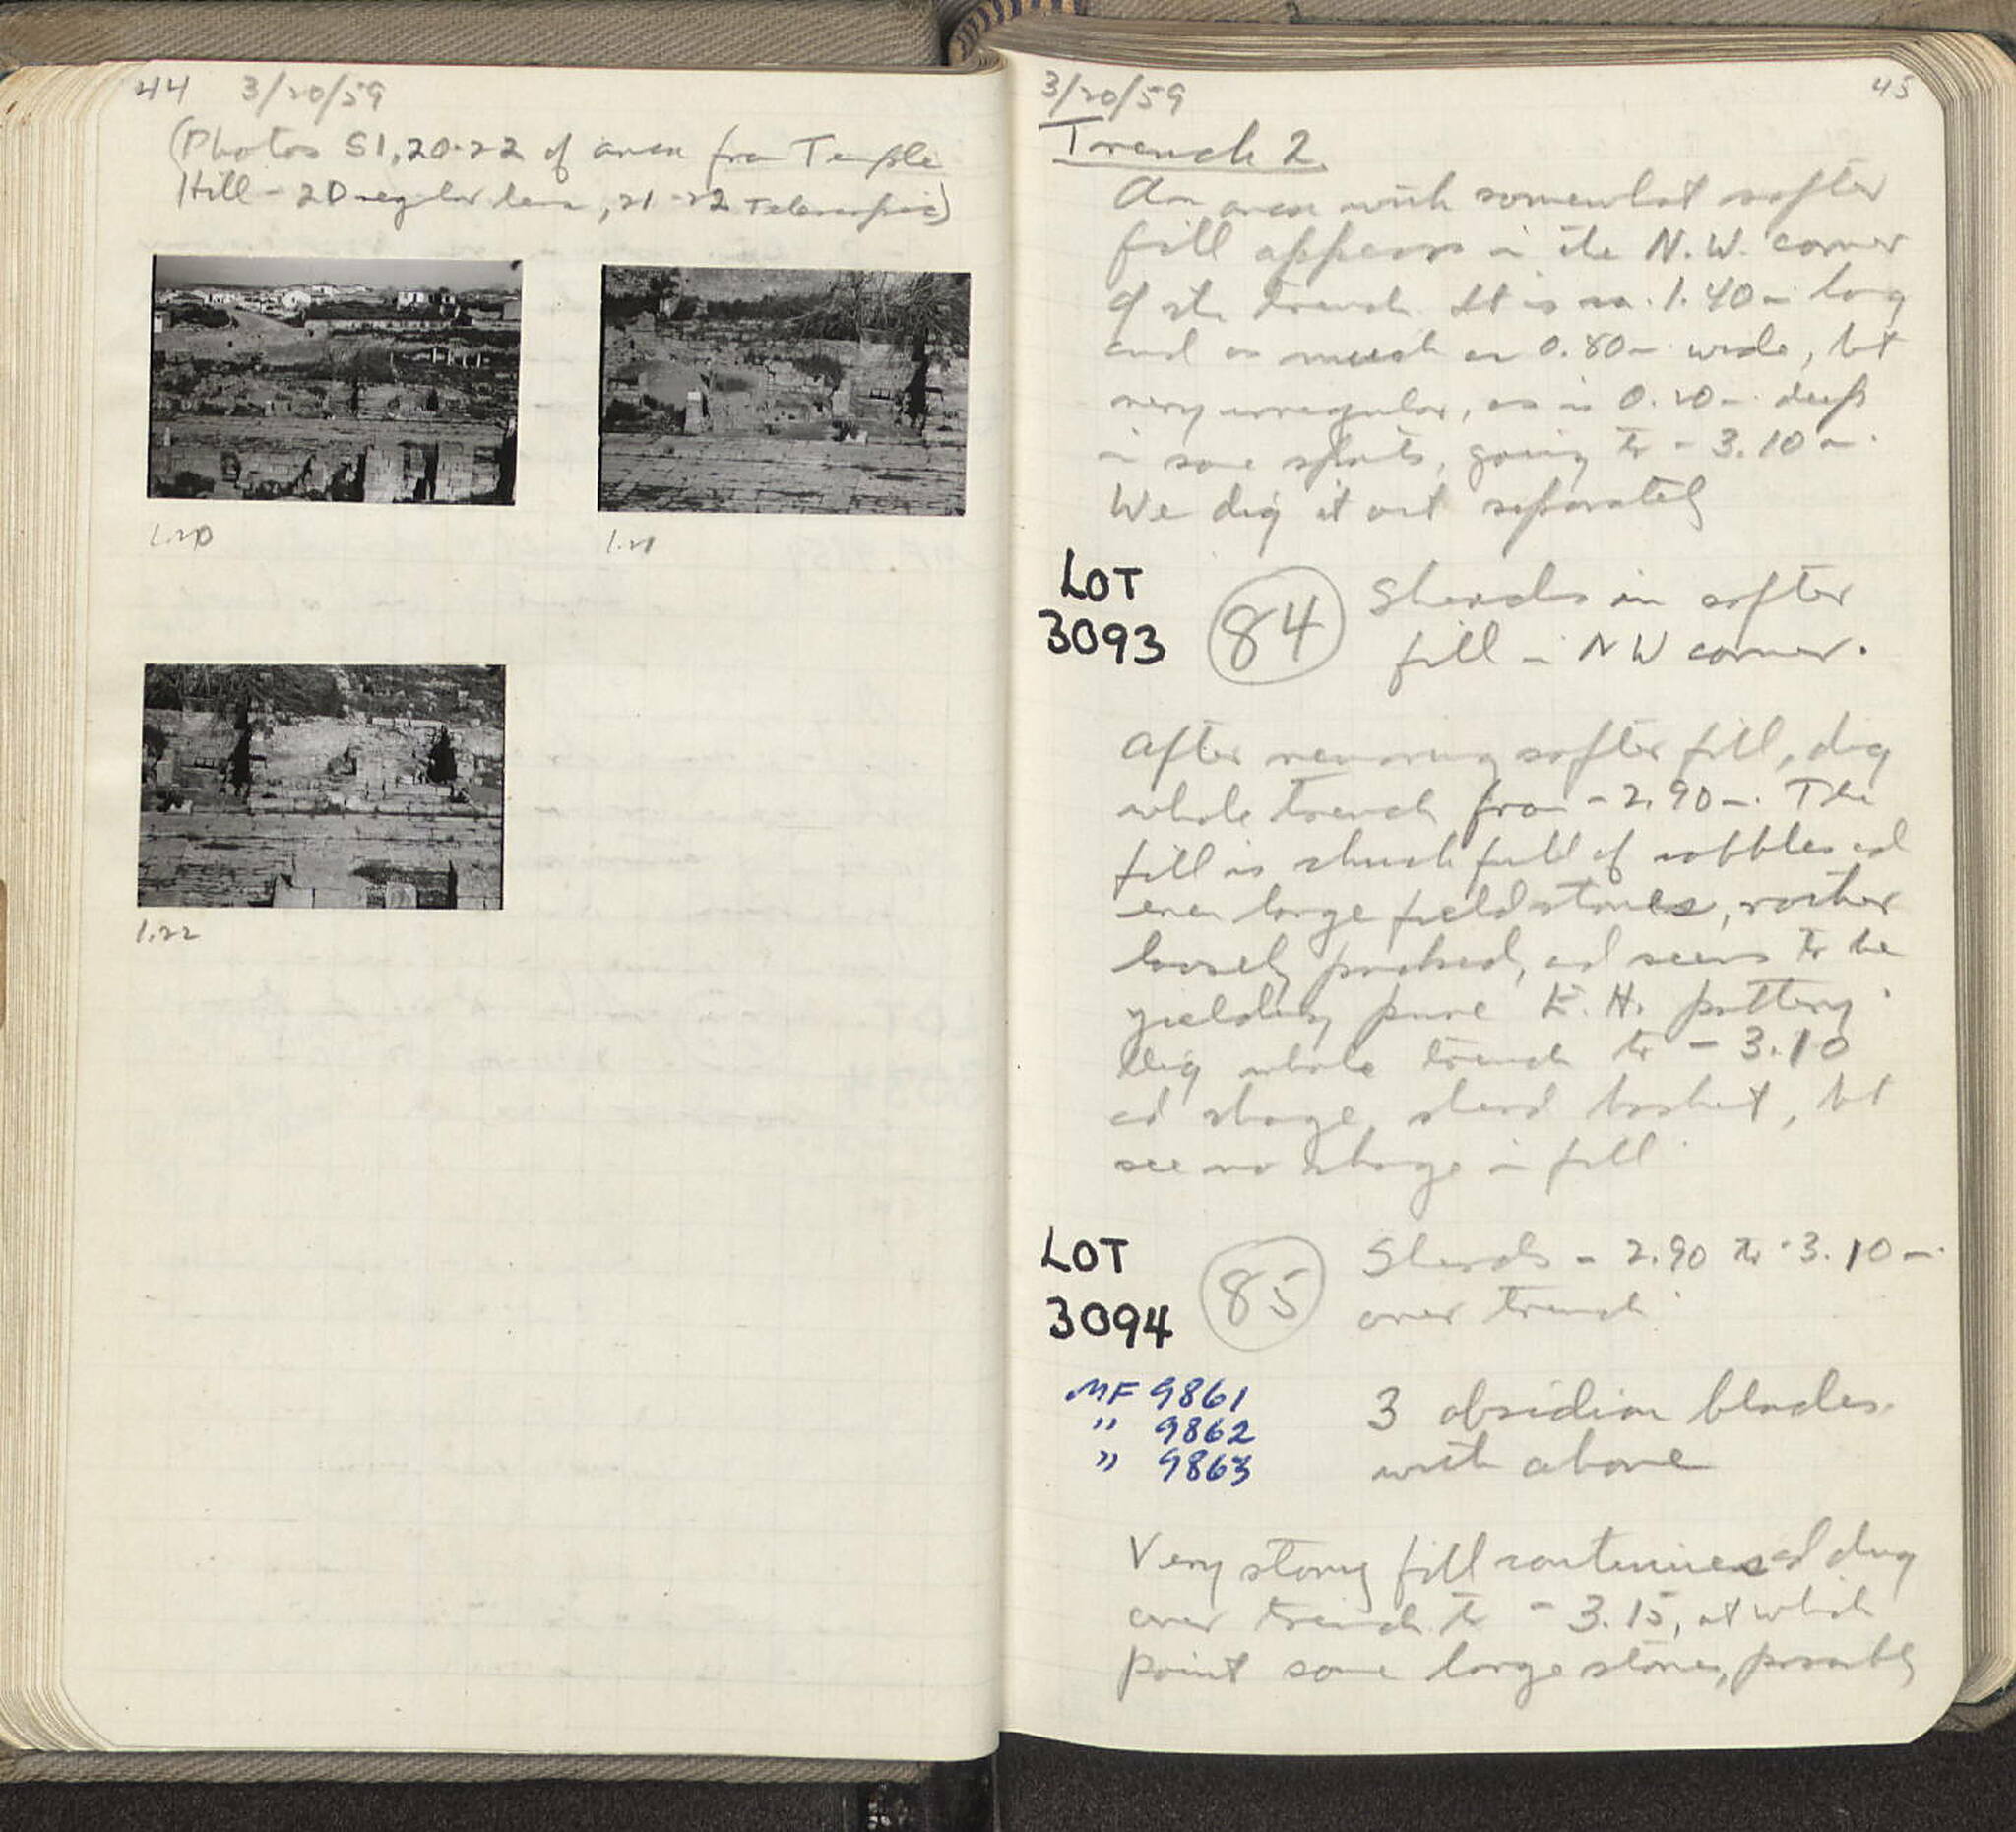 44 3/20/59
(Photos S1, 20-22 of area from Temple
Hill - 20 regular lens, 21-22 Telescopic)
1.20
1.21
1.22
3/20/59
45
Trench 2
An area with somewhat softer
fill appears in the N.W. corner
of the trench. It is ca. 1.40 m long
and as much as 0.80 m wide, but
very irregular, as is 0.20 m. deep
in some spots, going to -3.10 m.
We dig it out separately
LOT
3093
84
Sherds in softer
fill in NW corner.
After removing softer fill, dig
whole trench from -2.90 m. The
fill is chuck full of cobbles and
even large fieldstones, rather
loosely packed, and seems to be
yielding pure E.H. pottery.
Dig whole trench to -3.10
and change sherd basket, but
see no change in fill
LOT
3094
85
Sherds -2.90 to -3.10 m.
over trench
MF 9861
" 9862
" 9863
3 obsidian blades
with above
Very stony fill continues and dug
over trench to -3.15, at which
point some large stones, possibly